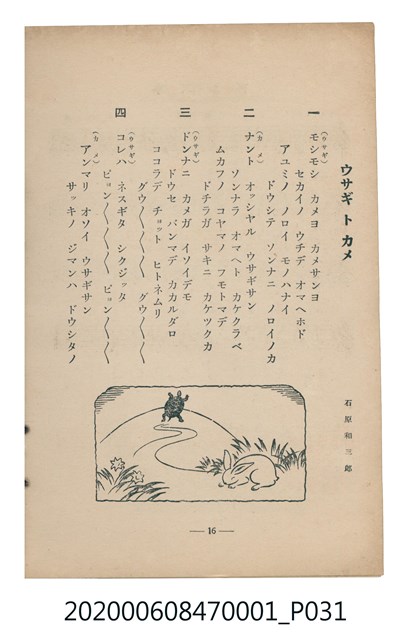 ウサギト カメ
石原和三郎
一
（ウサギ）
モシモシ カメヨ カメサンヨ
セカイノ ウチデ オマヘホド
アユミノ ノロイ モノハナイ
ドウシテ ソンナニ ノロイノカ
二
（カメ）
ナント オッシヤル ウサギサン
ソンナラ オマヘト カケクラベ
ムカフノ コヤマノ フモトマデ
ドチラガ サキニ カケツクカ
三
（ウサギ）
ドンナニ カメガ イソイデモ
ドウセ バンマデ カカルダロ
ココラデ チョット ヒトネムリ
グウ〱〱〱 グウ〱〱〱
四
（ウサギ）
コレハ ネスギタ シクジッタ
ピョン〱〱〱 ピョン〱〱〱
（カメ）
アンマリ オソイ ウサギサン
サッキノ ジマンハ ドウシタノ
— 16 —
202000608470001_P031